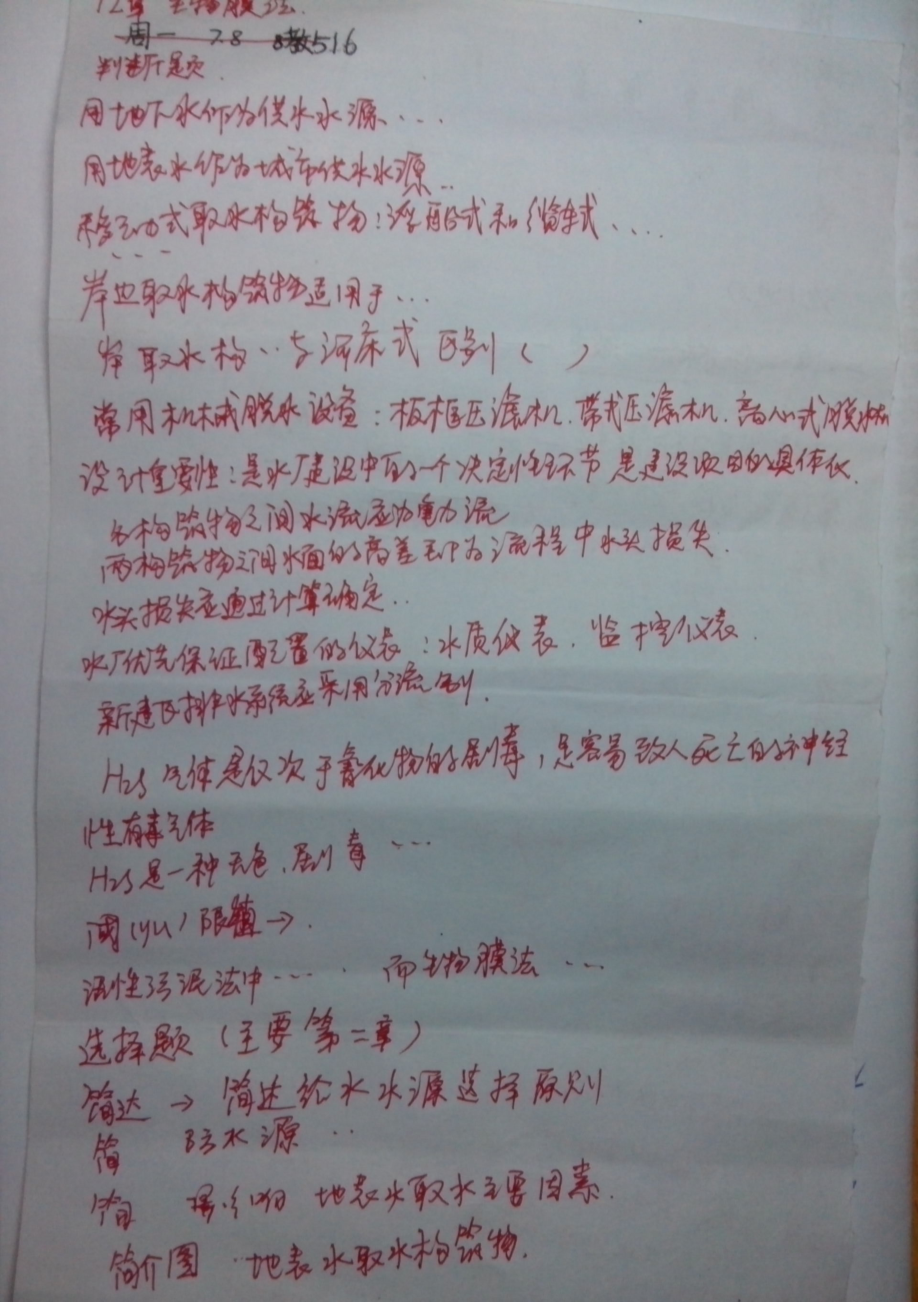 12章 生物膜法.
周一 78 教516
判断题.
用地下水作为供水水源....
用地表水作为城市供水水源..
移动式取水构筑物:浮船式和缆车式....
...
岸边取水构筑物适用于...
岸取水构..与河床式区别( )
常用机械脱水设备:板框压滤机.带式压滤机.离心式脱水机
设计重要性:是水厂建设中的一个决定性环节是建设项目的具体化.
各构筑物之间水流应为重力流
两构筑物之间水面的高差即为流程中水头损失.
水头损失应通过计算确定..
水厂优先保证配置的仪表:水质仪表.监控仪表.
新建区排水系统应采用分流制.
H2S气体是仅次于氰化物的剧毒,是容易致人死亡的神经
性有毒气体
H2S是一种无色.剧毒...
阈(yu)限值→.
活性污泥法中.... 而生物膜法...
选择题(主要第二章)
简述→简述给水水源选择原则
简 水源..
简 影响 地表水取水主要因素.
简介图 ..地表水取水构筑物.